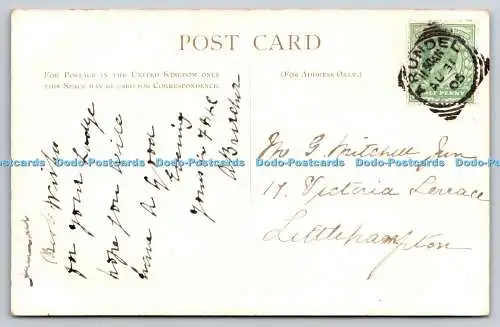 POST CARD
FOR POSTAGE IN THE UNITED KINGDOM ONLY
THIS SPACE MAY BE USED FOR CORRESPONDENCE.
(FOR ADDRESS ONLY.)
ARUNDEL
HALFPENNY
Best Wishes
for your
hope you will
have a good
Evening
yours in F & C
Mr G Mitchell Jun
17. Victoria Terrace
Littlehampton
Dodo-Postcards Dodo-Postcards Dodo-Postcards Dodo-Postcards Dodo-Postcards Dodo-Postcards